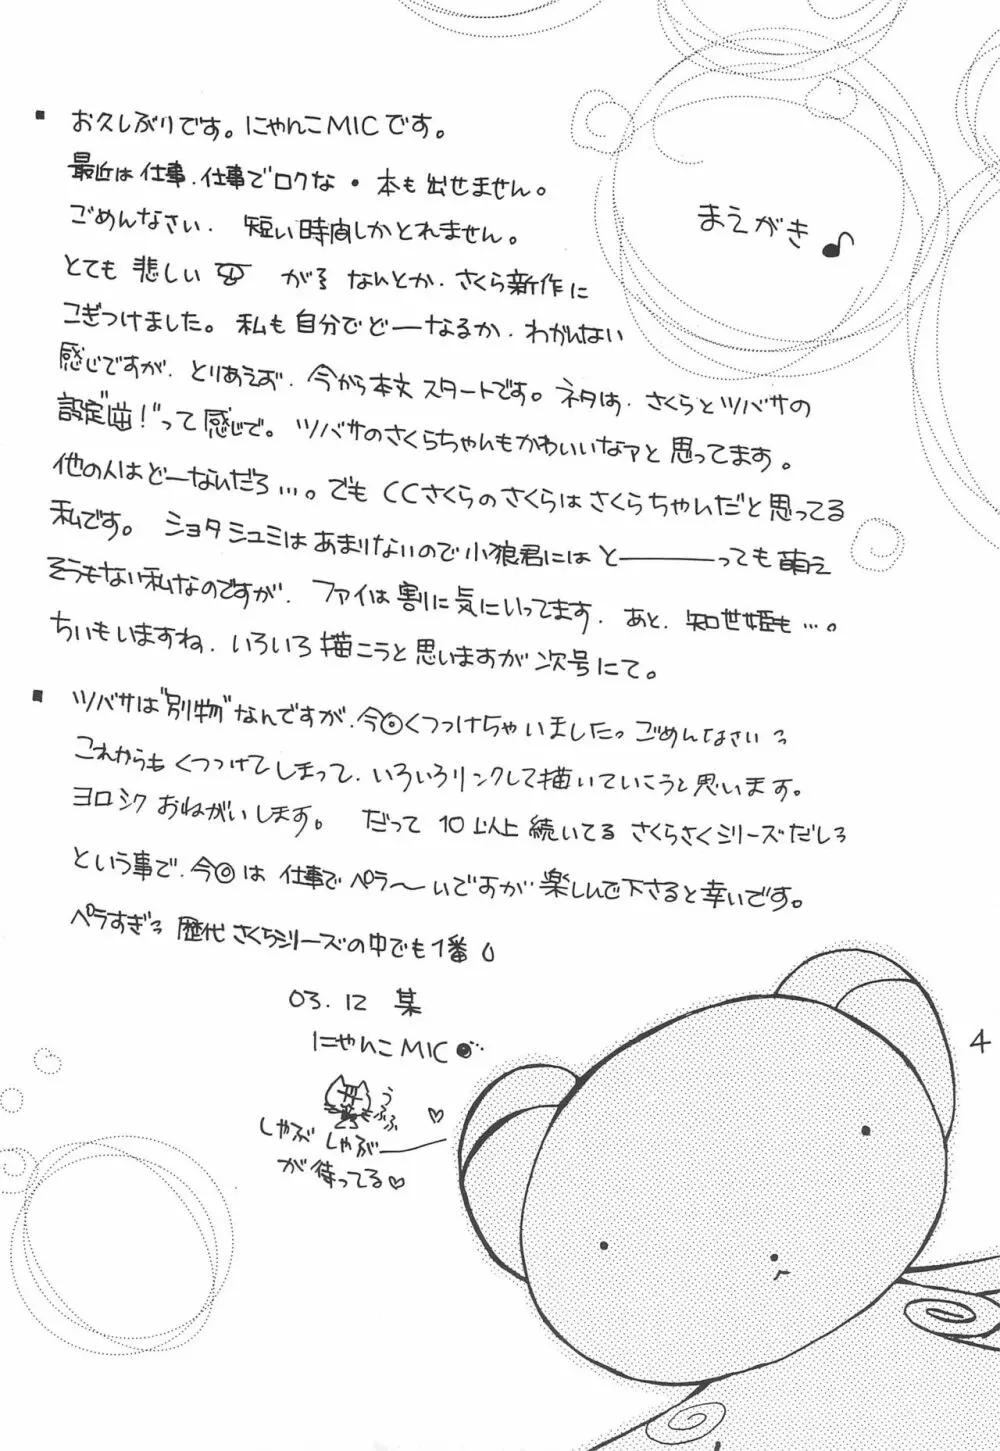 まえがき♪
■ お久しぶりです。にゃんこMICです。
最近は仕事、仕事でロクな・本も出せません。
ごめんなさい、短い時間しかとれません。
とても悲しい が なんとか、さくら新作に
こぎつけました。私も自分でどーなるか、わかんない
感じですが、とりあえず、今から本文スタートです。ネタは、さくらとツバサの
設定"逆!"って感じで。ツバサのさくらちゃんもかわいいなァと思ってます。
他の人はどーなんだろ…。でもCCさくらのさくらはさくらちゃんだと思ってる
私です。ショタシュミはあまりないので小狼君にはと―――っても萌え
そうもない私なのですが、ファイは割に気にいってます、あと、知世姫も…。
ちいもいますね、いろいろ描こうと思いますが次号にて。
■ ツバサは"別物"なんですが、今回くっつけちゃいました。ごめんなさいっ
これからもくっつけてしまって、いろいろリンクして描いていこうと思います。
ヨロシクおねがいします。だって10以上続いてるさくらさくシリーズだしっ
という事で、今回は仕事でペラ〜いですが楽しんで下さると幸いです。
ペラすぎっ歴代さくらシリーズの中でも1番
03.12 某
にゃんこMIC
うふふ
しゃぶしゃぶー
が待ってる♡
4